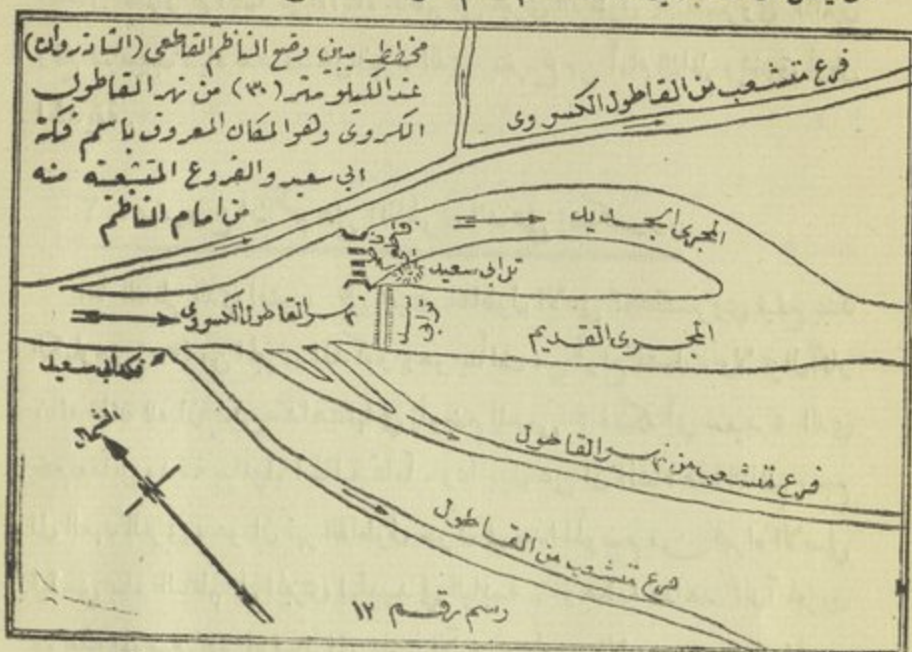 مخطط يبين وضع الناظم القاطعي (الشاذروان)
عند الكيلو متر (٣٠) من نهر القاطول
الكسروي وهو المكان المعروف باسم فكة
ابي سعيد والفروع المتشعبة منه
من امام الناظم
فرع متشعب من القاطول الكسروي
المجرى الجديد
ناظم قاطعي
تل ابي سعيد
نهر القاطول الكسروي
سد ترابي
المجرى القديم
فكة ابي سعيد
فرع متشعب من نهر القاطول
فرع متشعب من القاطول
رسم رقم ١٢